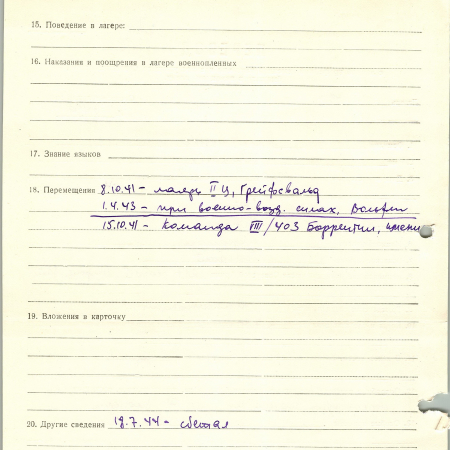 15. Поведение в лагере:
16. Наказания и поощрения в лагере военнопленных
17. Знание языков
18. Перемещения 8.10.41 – лагерь II Ц, Грейфсвальд
1.4.43 – при военно-возд. силах,
15.10.41 – команда VIII/403 Боррентин, имени
19. Вложения в карточку
20. Другие сведения 18.7.44 – сбежал